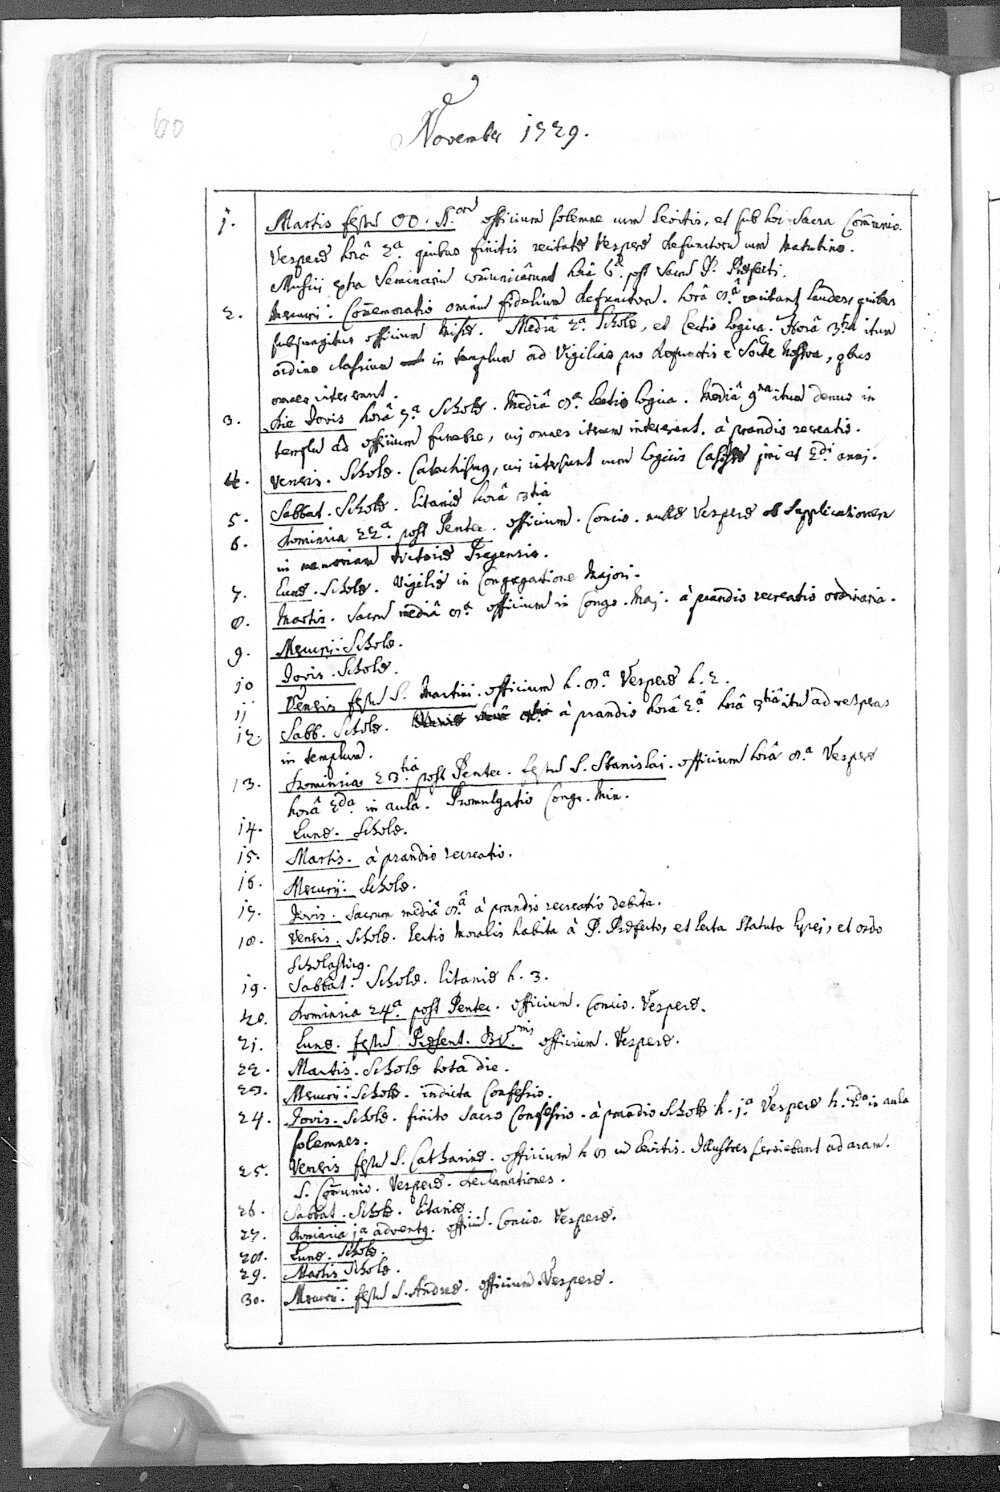 60
November 1729.
1. Martis festū OO. SS.orū officium solemne cum levitis, et sub hoc Sacra Com̄unio.
Vesperæ horâ 2.a quibus finitis recitatæ Vesperæ defunctorū cum Matutino.
Musici extra Seminariū com̄unicârunt horâ 6.â post Sacrū P. Præfecti.
2. Mercurij: Com̄emoratio omniū fidelium defunctorū. horâ 8.â recitant Laudes quibus
subjungitur officium Missæ. Mediâ 2.a Scholæ, et Lectio Logica. Horâ 3tiâ itum
ordine classium in templum ad Vigilias pro defunctis è Soctte Nostra, qbus
omnes intererant.
3. Die Jovis horâ 7.a Scholæ. Mediâ 8.a Lectio Logica. Mediâ 9na itum denuo in
templū ad officium funebre, cui omnes iterum intererant. à prandio recreatio.
4. Veneris. Scholæ. Catechismq, cui intersunt cum Logicis Casistæ pmi et 2di anni.
5. Sabbat. Scholæ. litaniæ horâ 3tiâ
6. Dominica 22a. post Pentec. officium. Concio. nullæ Vesperæ ob supplicationem
in memoriam victoriæ Pragensis.
7. Lunæ. Scholæ. Vigiliæ in Congregatione Majori.
8. Martis. Sacrū mediâ 8.a officium in Congr. Maj. à prandio recreatio ordinaria.
9. Mercurij: Scholæ.
10 Jovis. Scholæ.
11 Veneris festū S. Martini. officium h. 8.a Vesperæ h. 2.
12. Sabb. Scholæ. à prandio horâ 2.â horâ 3tiâ itū ad vesperas
in templum.
13. Dominica 23tia post Pentec. festū S. Stanislai. officium horâ 8.a Vesperæ
horâ 2da in aulâ. Promulgatio Congr. Min.
14. Lunæ. Scholæ.
15. Martis. à prandio recreatio.
16. Mercurij: Scholæ.
17. Jovis. Sacrum mediâ 8.â à prandio recreatio debita.
18. Veneris. Scholæ. Lectio Moralis habita à P. Præfecto, et lecta Statuta Lycei, et ordo
Scholasticq.
19. Sabbat. Scholæ. litaniæ h. 3.
20. Dominica 24a. post Pentec. officium. Concio. Vesperæ.
21. Lunæ. festū Præsent. BV.mis officium. Vesperæ.
22. Martis. Scholæ totâ die.
23. Mercurij: Scholæ. indicta Confessio.
24. Jovis. Scholæ. finito Sacro Confessio. à prandio Scholæ h. 1.a Vesperæ h. 2da in aula
solemnes.
25. Veneris festū S. Catharinæ. officium h 8 cū levitis. Illustres serviebant ad aram.
S. Com̄unio. Vesperæ. Declamationes.
26. Sabbat. Scholæ. litaniæ.
27. Dominica 1a adventq. officiū. Concio. Vesperæ.
28. Lunæ. Scholæ.
29. Martis Scholæ.
30. Mercurij: festū S. Andreæ. officium. Vesperæ.